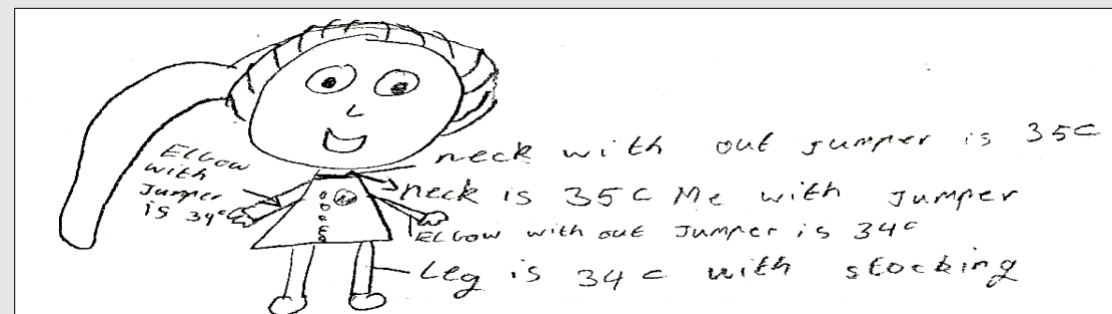 neck with out jumper is 35c
Elbow
with
Jumper
is 34c
neck is 35c Me with Jumper
Elbow with out Jumper is 34c
Leg is 34c with stocking